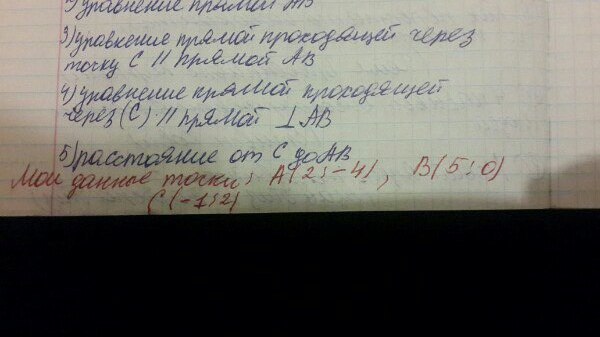 2) уравнение прямей АВ
3) уравнение прямой проходящей через
точку С || прямой АВ
4) уравнение прямой проходящей
через (С) || прямой ⊥ АВ
5) расстояние от С до АВ
Мои данные точки: А(2;-4), В(5;0)
С(-1;2)